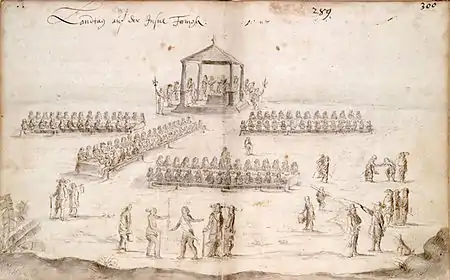 Landtag auf der Insul Formosa
289
300